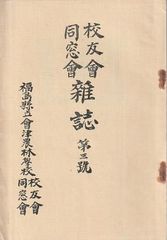 校友會
同窓會
雑誌
第三號
福島縣立會津農林學校
校友會
同窓會